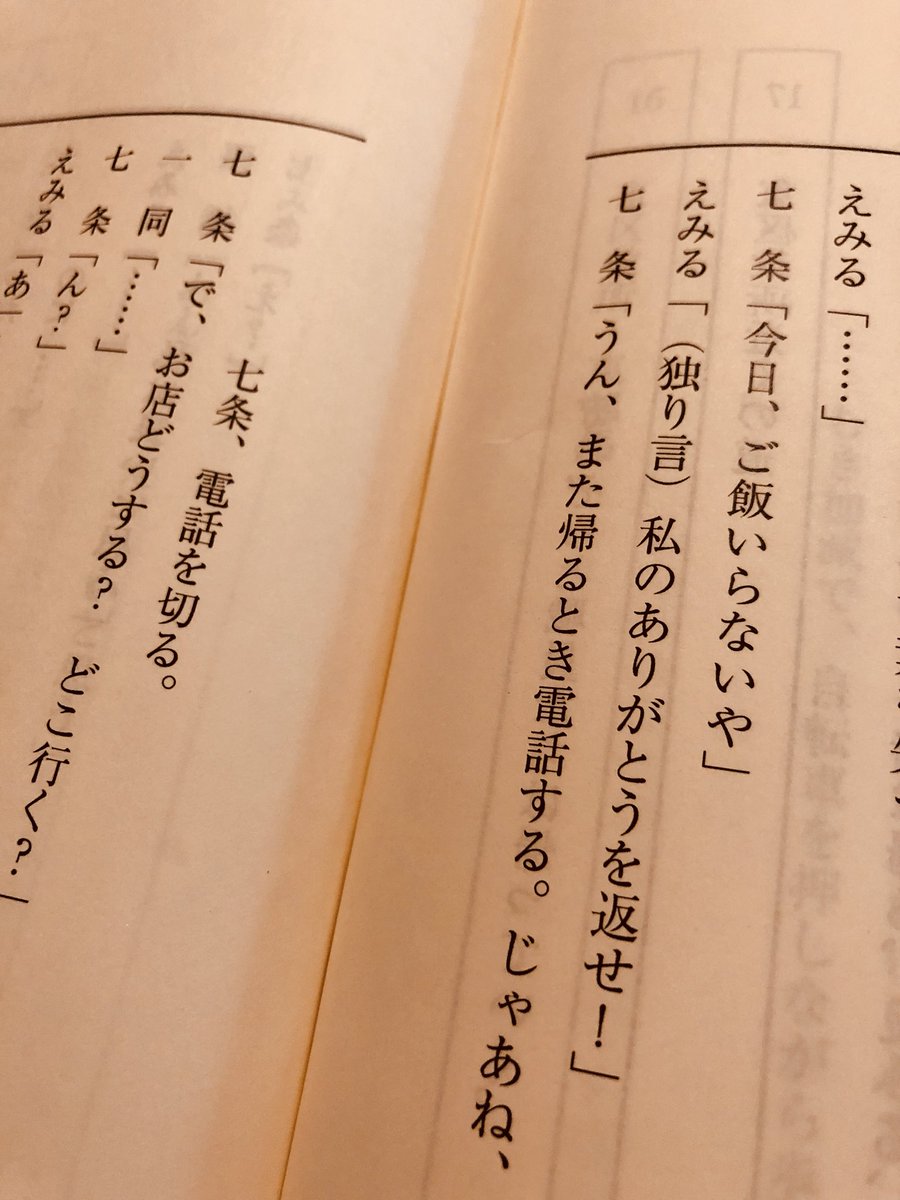 えみる「……」
七条「今日、ご飯いらないや」
えみる「（独り言）私のありがとうを返せ！」
七条「うん、また帰るとき電話する。じゃあね、
七条、電話を切る。
七条「で、お店どうする？　どこ行く？」
一同「……」
七条「ん？」
えみる「あ」